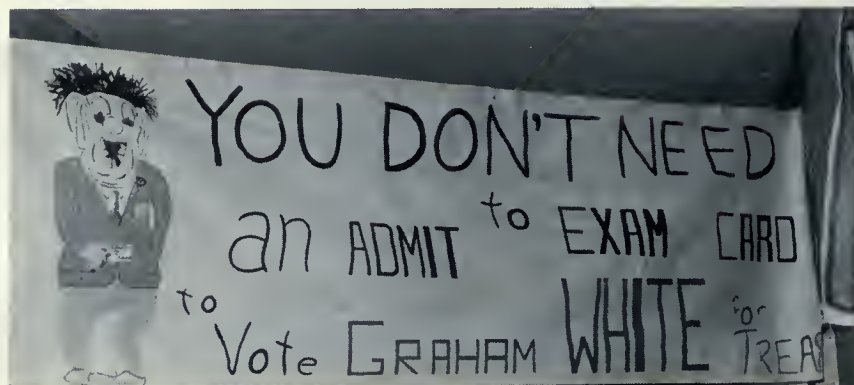 YOU DON'T NEED
an ADMIT to EXAM CARD
to Vote GRAHAM WHITE for TREAS